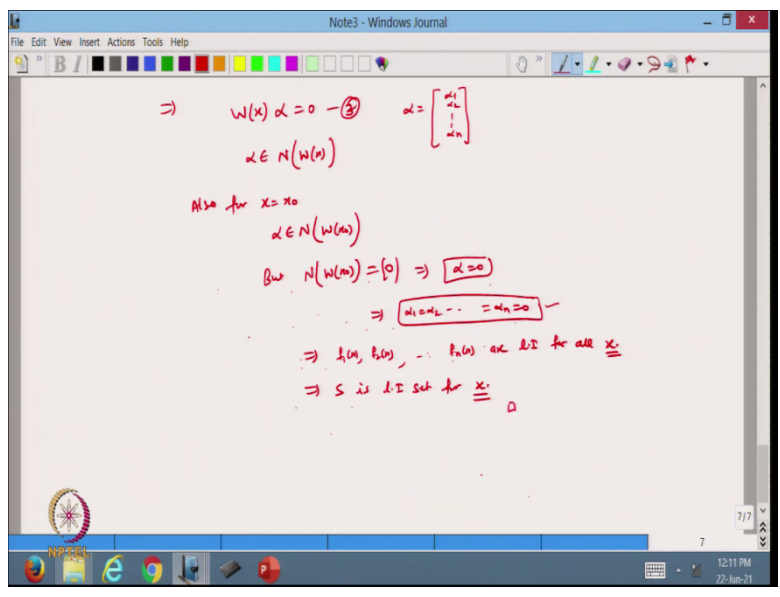 Note3 - Windows Journal
File Edit View Insert Actions Tools Help
B I
⇒ W(x) α = 0 - ③ α = [α1 α2 ⋮ αn]
α ∈ N(W(x))
Also for x = x0
α ∈ N(W(x0))
But N(W(x0)) = {0} ⇒ α = 0
⇒ α1 = α2 - - = αn = 0 -
⇒ f1(x), f2(x), - . fn(x) are l.I for all x.
⇒ S is l.I set for x.
7/7
7
NPTEL
12:11 PM
22-Jun-21